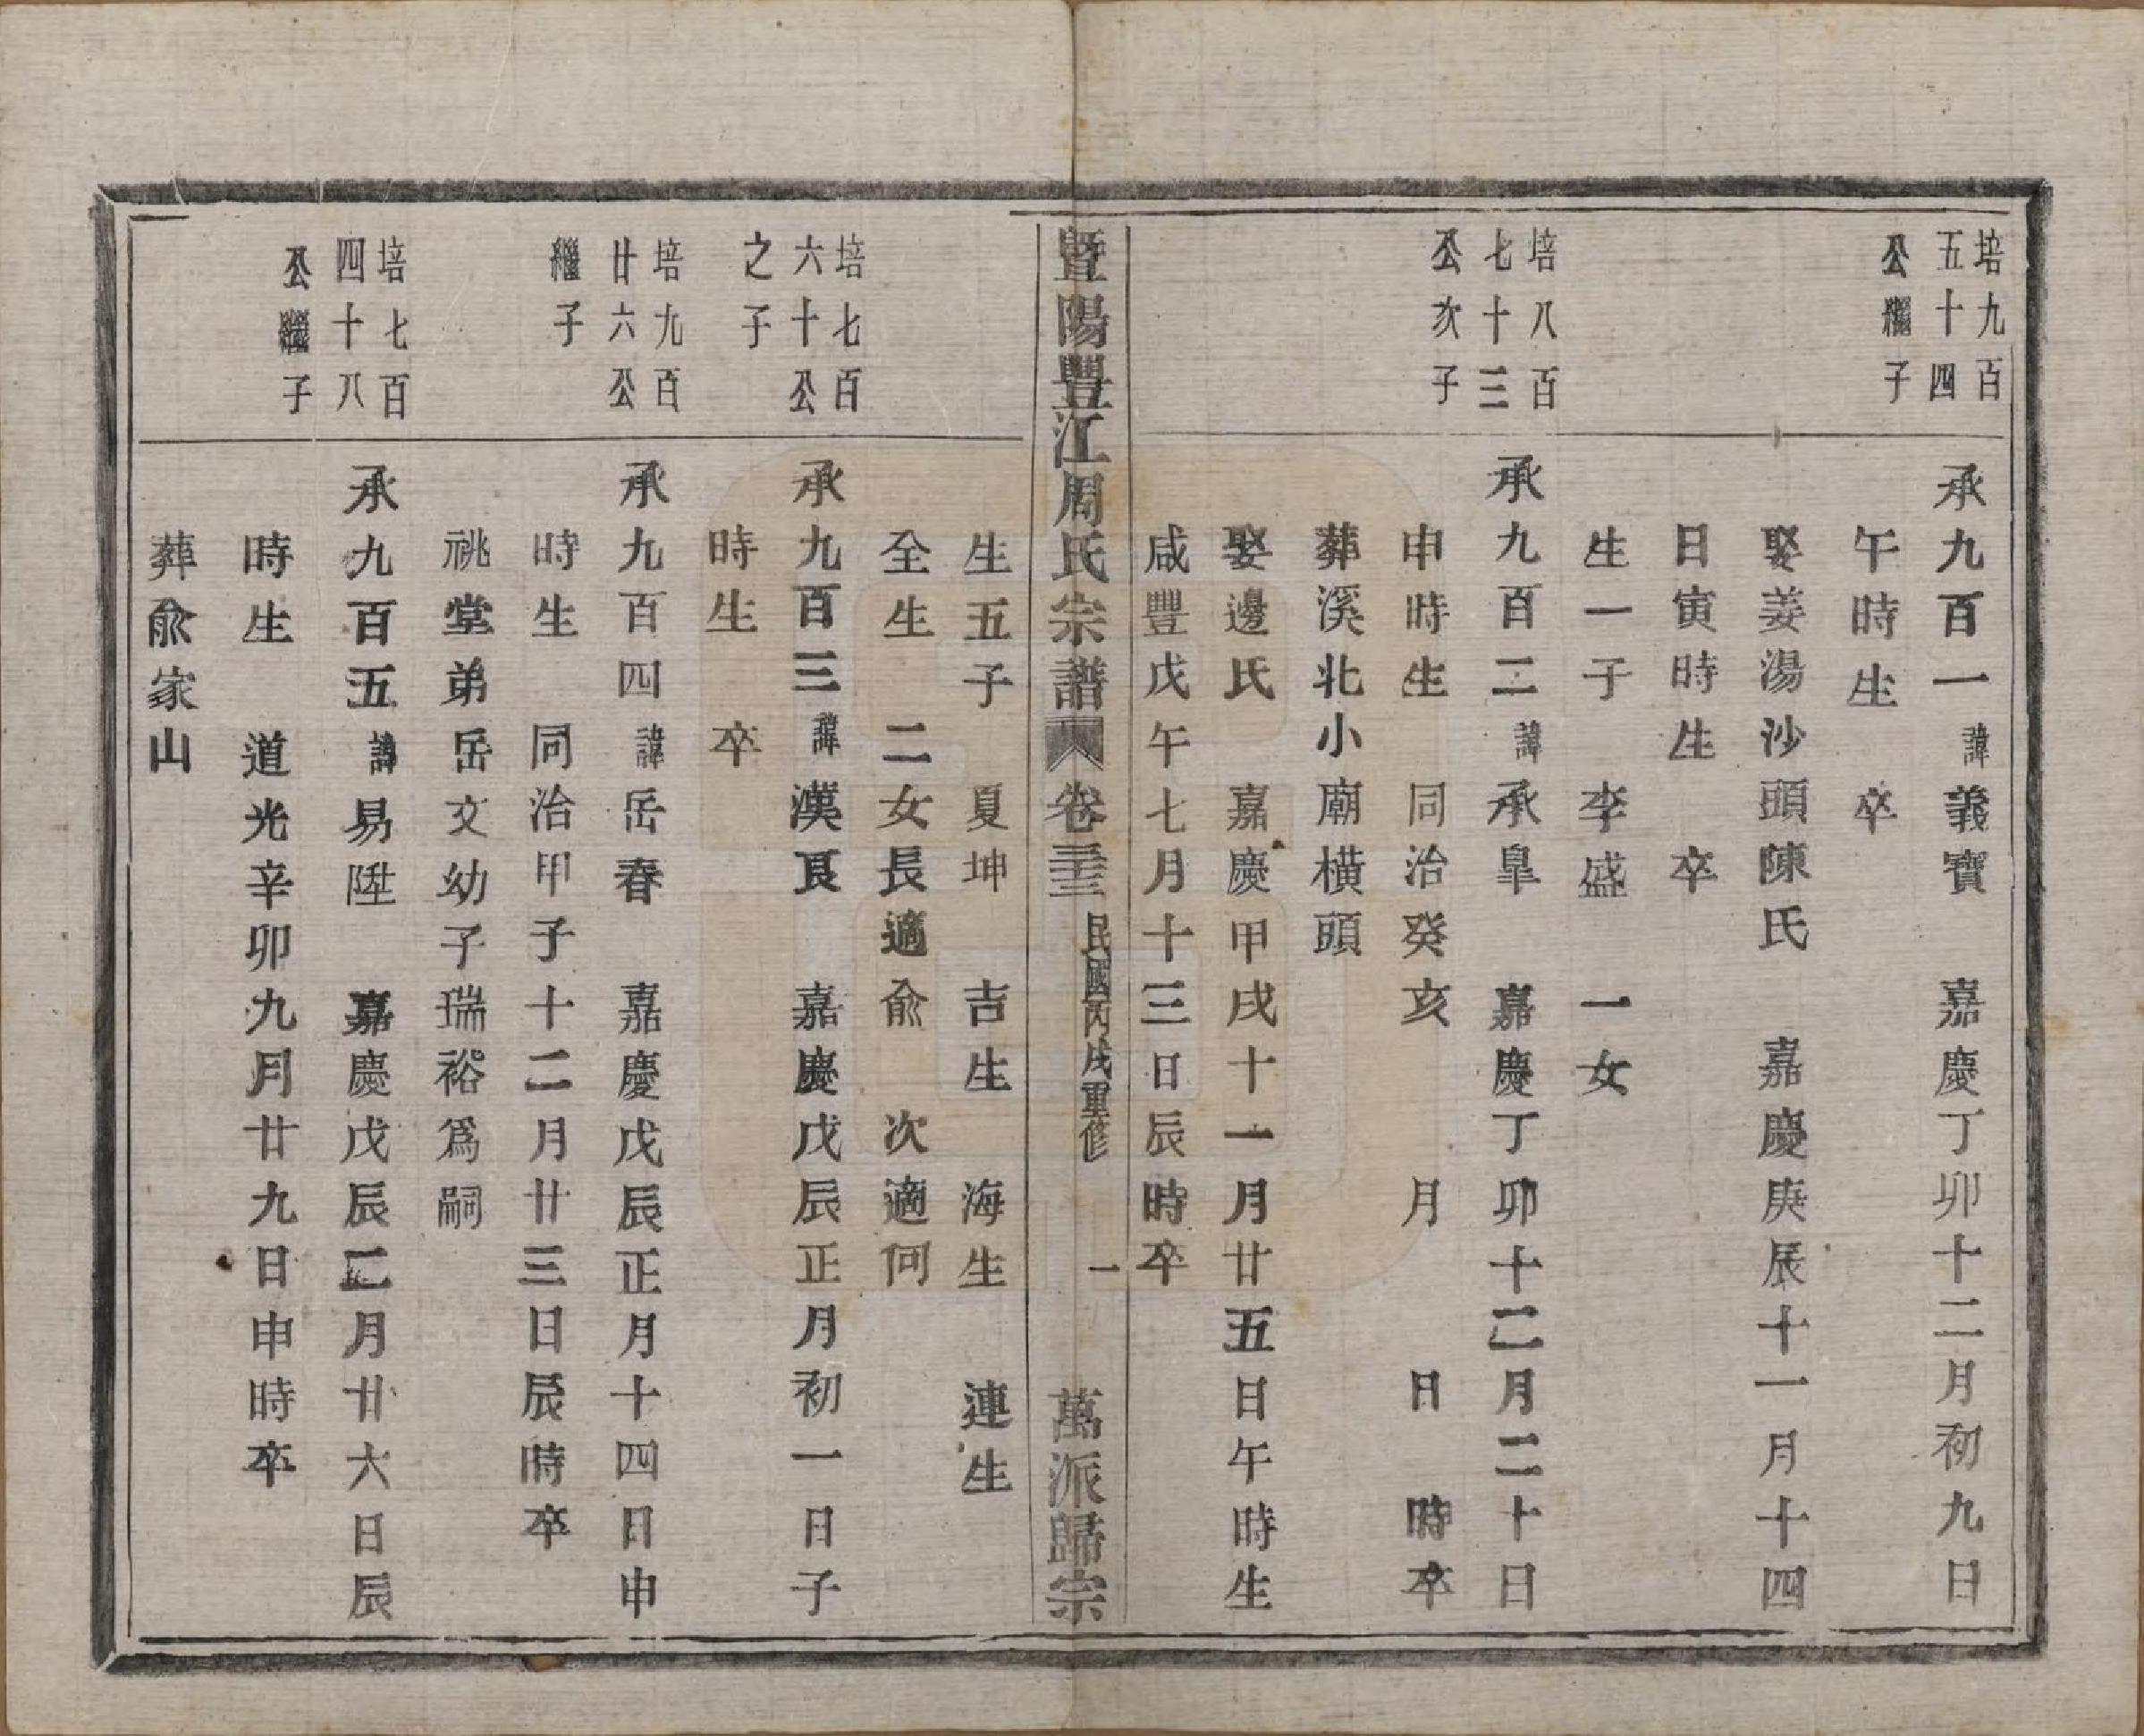 培九百
五十四
公繼子
承九百一諱義寶　嘉慶丁卯十二月初九日
午時生　卒
娶姜湯沙頭陳氏　嘉慶庚辰十一月十四
日寅時生　卒
生一子　李盛　一女
培八百
七十三
公次子
承九百二諱承皐　嘉慶丁卯十二月二十日
申時生　同治癸亥　月　日　時卒
葬溪北小廟橫頭
娶邊氏　嘉慶甲戌十一月廿五日午時生
咸豐戊午七月十三日辰時卒
暨陽豐江周氏宗譜　卷三十三　民國丙戌重修　一　萬派歸宗
生五子　夏坤　吉生　海生　連生
全生　二女長適俞　次適何
培七百
六十公
之子
承九百三諱漢良　嘉慶戊辰正月初一日子
時生　卒
培九百
廿六公
繼子
承九百四諱岳春　嘉慶戊辰正月十四日申
時生　同治甲子十二月廿三日辰時卒
祧堂弟岳文幼子瑞裕爲嗣
培七百
四十八
公繼子
承九百五諱易陞　嘉慶戊辰二月廿六日辰
時生　道光辛卯九月廿九日申時卒
葬俞家山